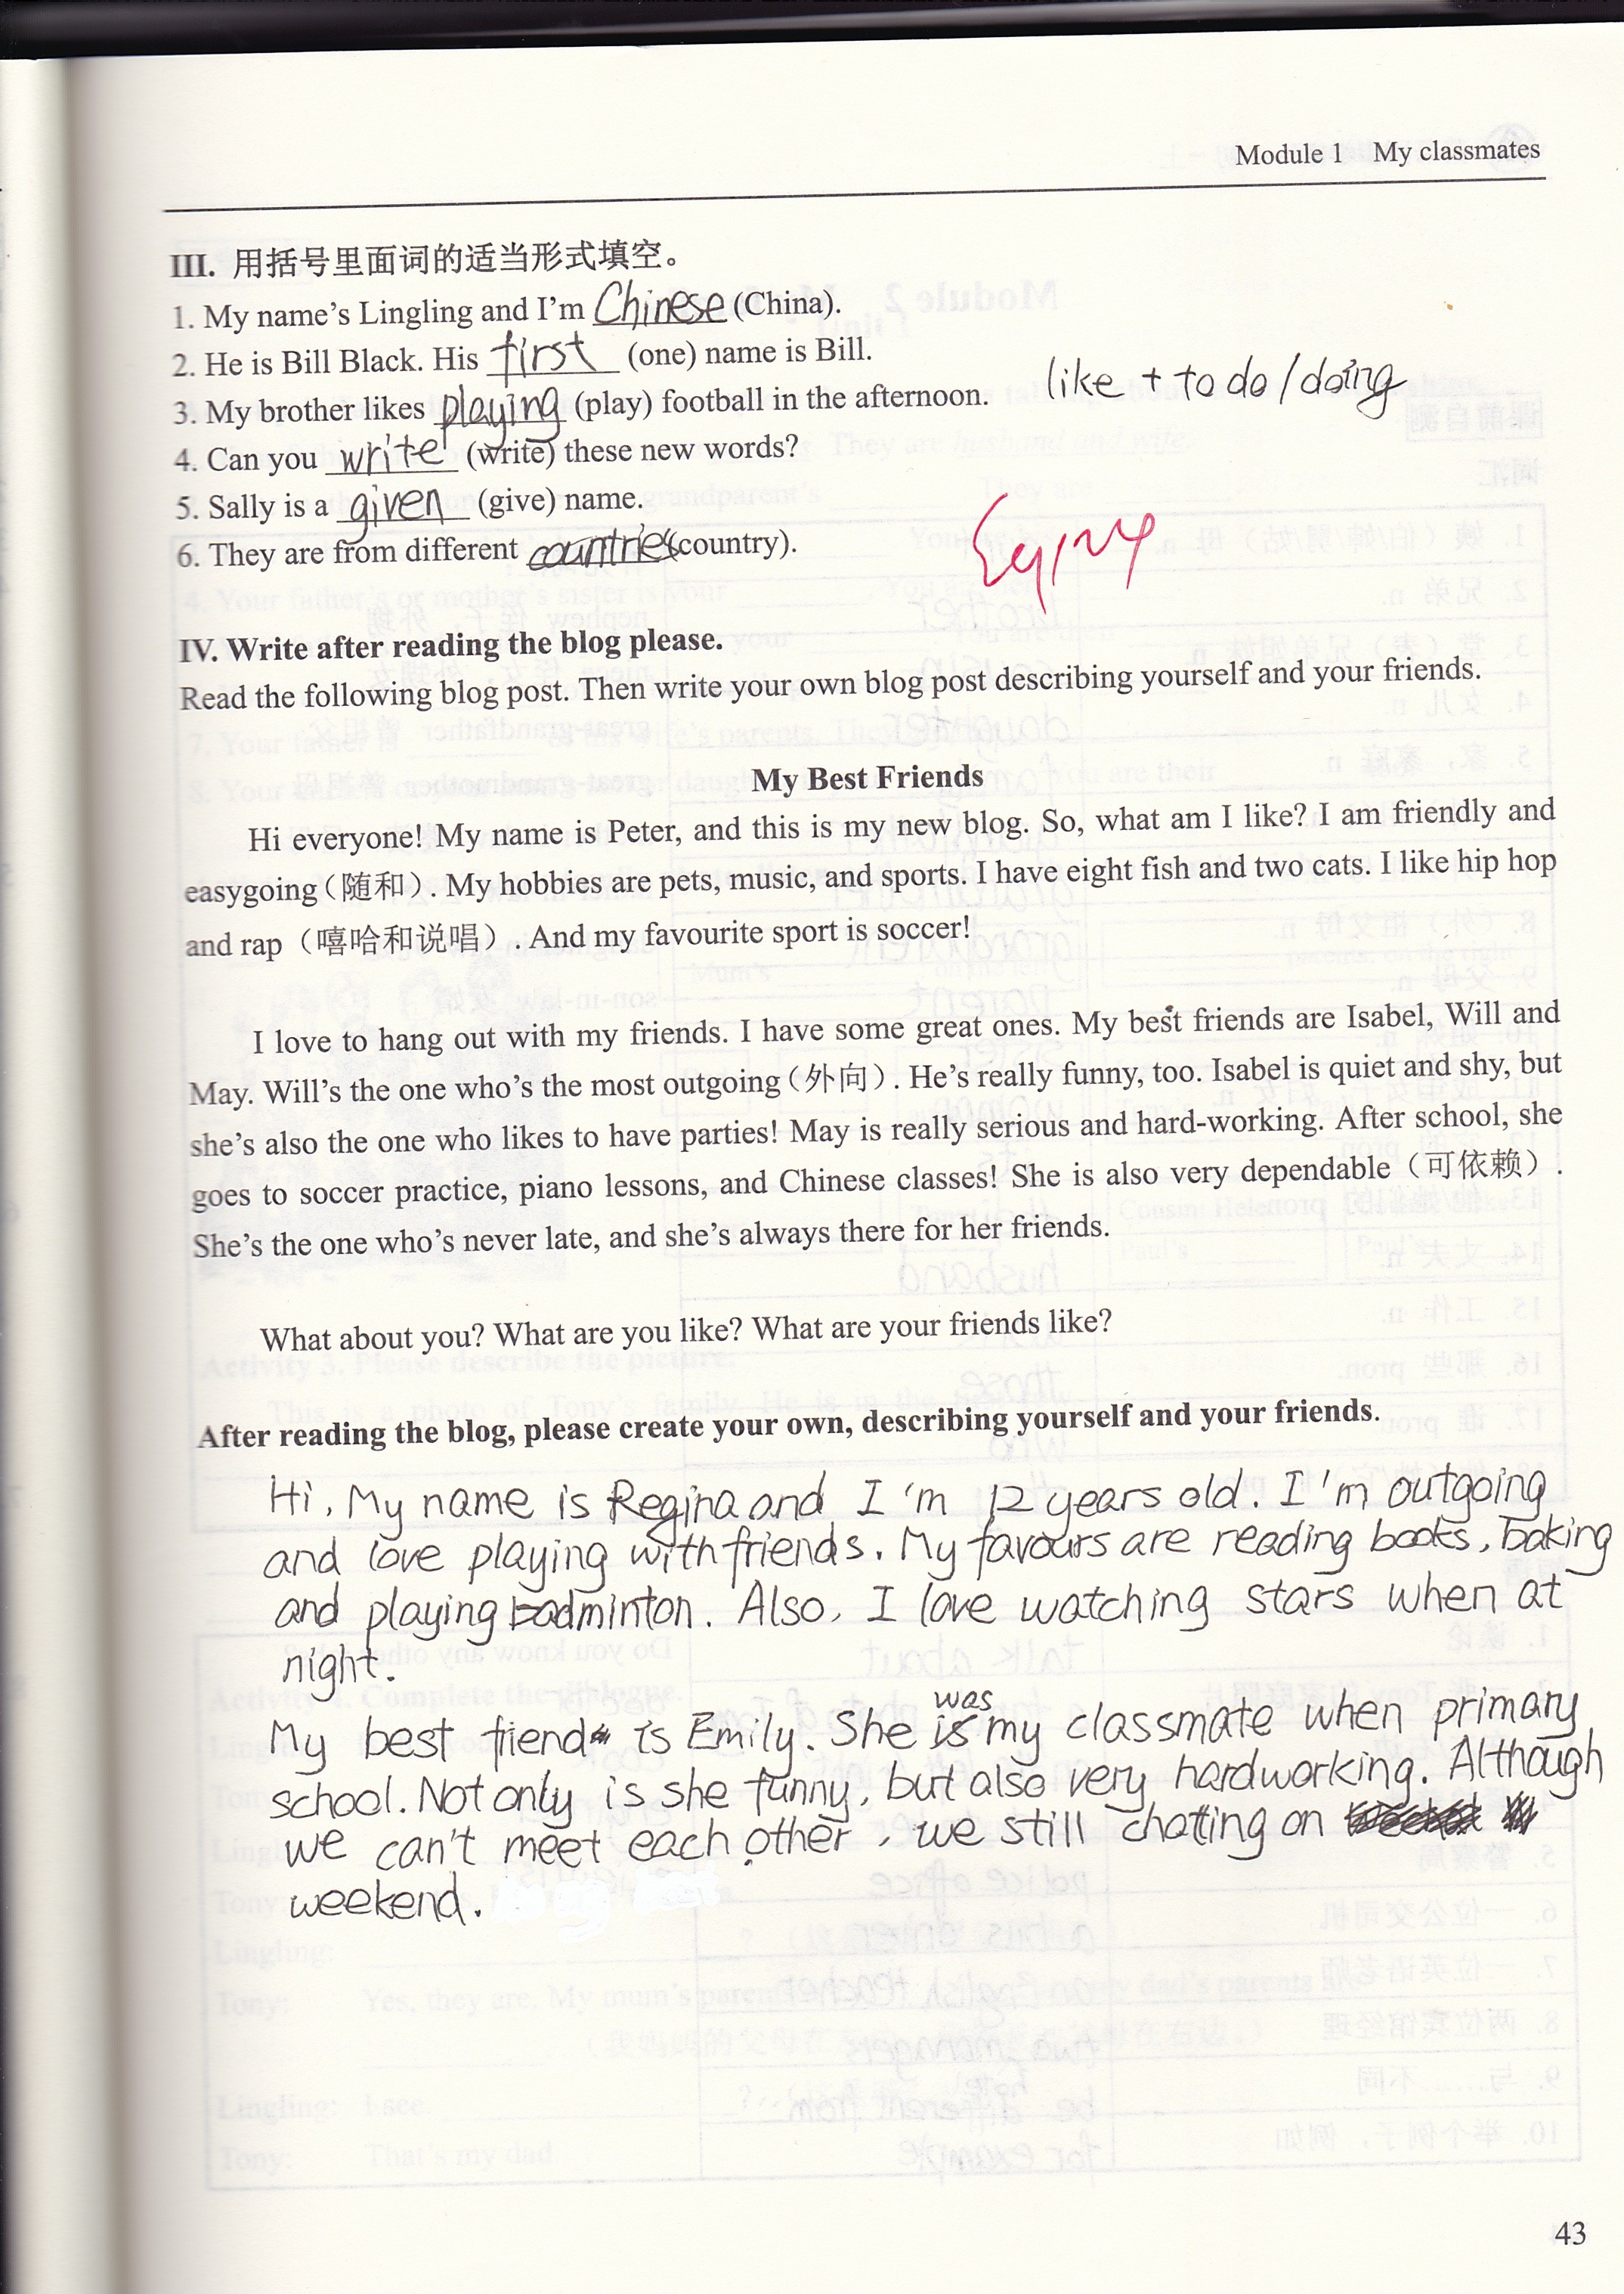 Module 1 My classmates
III. 用括号里面词的适当形式填空。
1. My name's Lingling and I'm Chinese (China).
2. He is Bill Black. His first (one) name is Bill.
3. My brother likes playing (play) football in the afternoon.
like + to do / doing
4. Can you write (write) these new words?
5. Sally is a given (give) name.
6. They are from different countries (country).
IV. Write after reading the blog please.
Read the following blog post. Then write your own blog post describing yourself and your friends.
My Best Friends
Hi everyone! My name is Peter, and this is my new blog. So, what am I like? I am friendly and
easygoing（随和）. My hobbies are pets, music, and sports. I have eight fish and two cats. I like hip hop
and rap（嘻哈和说唱）. And my favourite sport is soccer!
I love to hang out with my friends. I have some great ones. My best friends are Isabel, Will and
May. Will's the one who's the most outgoing（外向）. He's really funny, too. Isabel is quiet and shy, but
she's also the one who likes to have parties! May is really serious and hard-working. After school, she
goes to soccer practice, piano lessons, and Chinese classes! She is also very dependable（可依赖）.
She's the one who's never late, and she's always there for her friends.
What about you? What are you like? What are your friends like?
After reading the blog, please create your own, describing yourself and your friends.
Hi, My name is Regina and I'm 12 years old. I'm outgoing
and love playing with friends. My favours are reading books, baking
and playing badminton. Also, I love watching stars when at
night.
My best friend is Emily. She was my classmate when primary
school. Not only is she funny, but also very hardworking. Although
we can't meet each other, we still chatting on
weekend.
43